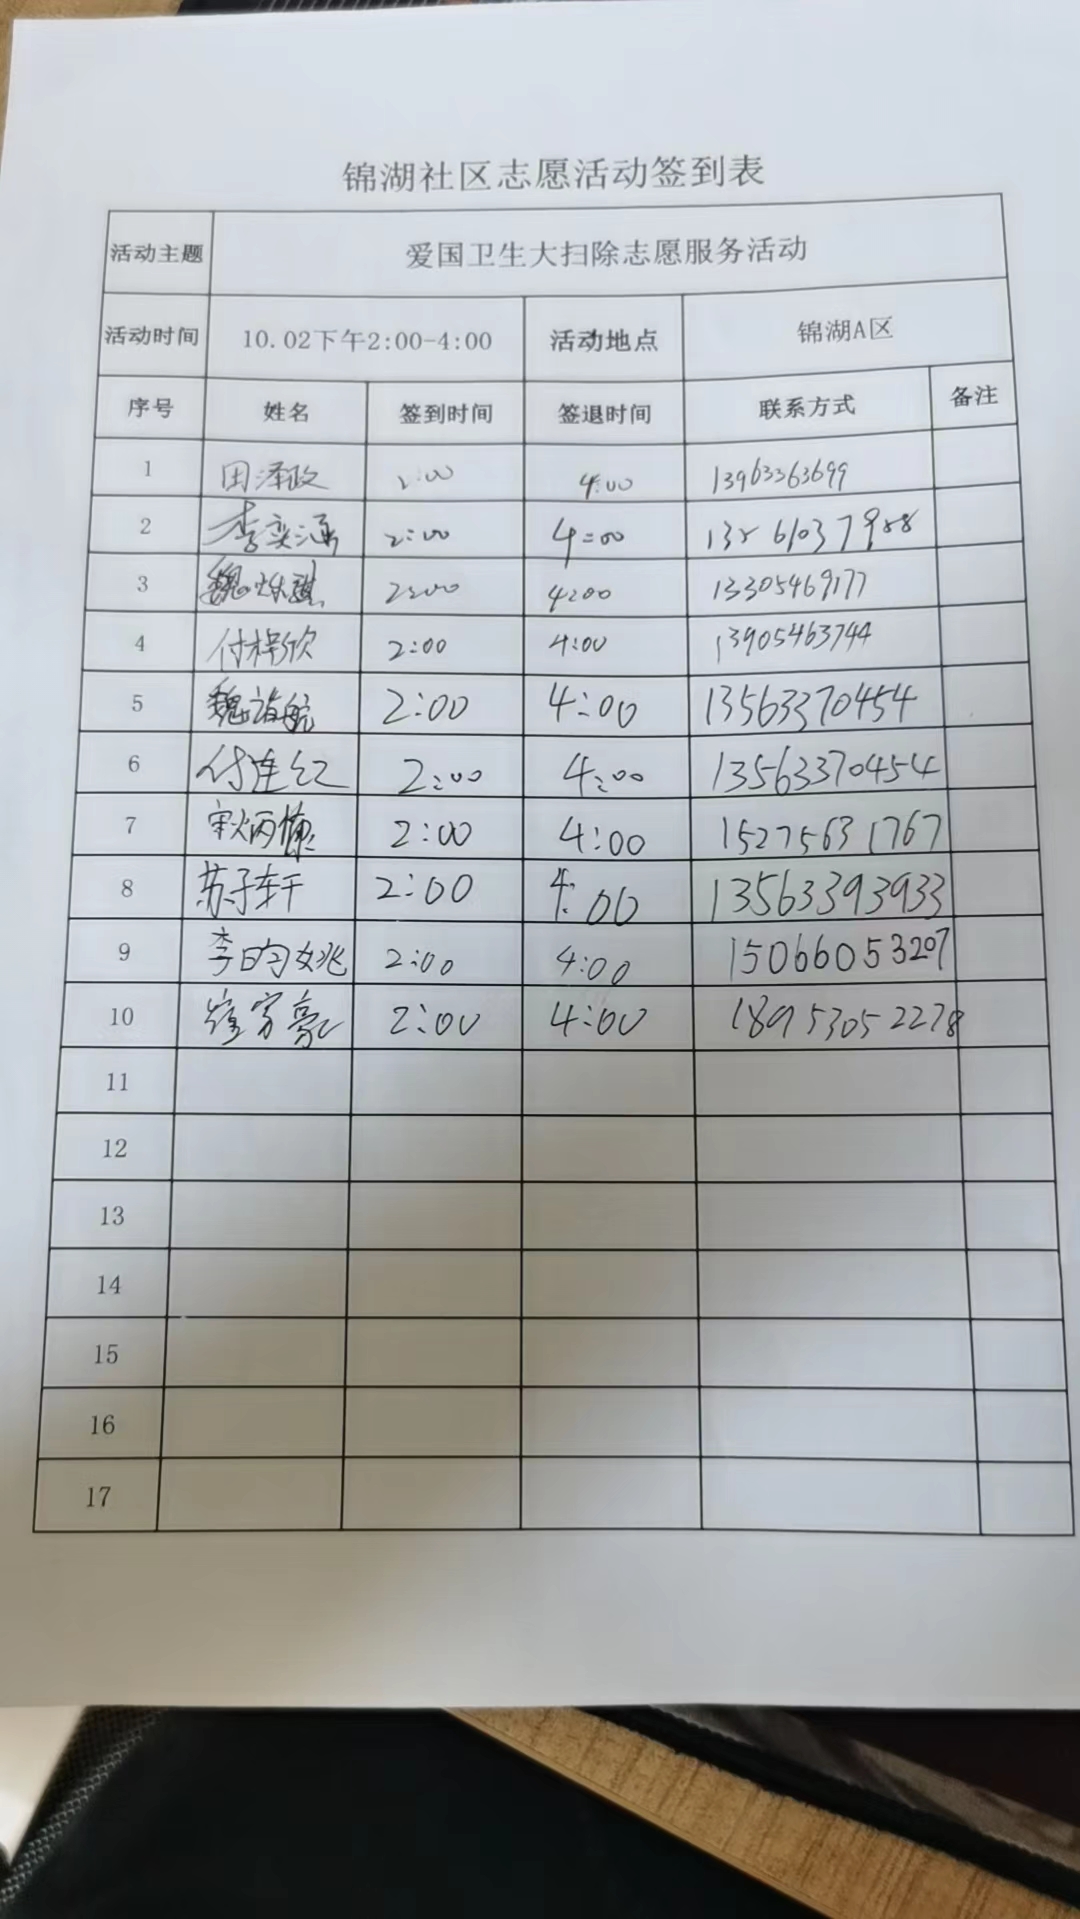 锦湖社区志愿活动签到表
活动主题 爱国卫生大扫除志愿服务活动
活动时间 10.02下午2:00-4:00 活动地点 锦湖A区
序号 姓名 签到时间 签退时间 联系方式 备注
1 田泽政 2:00 4:00 13963363699
2 李奕涵 2:00 4:00
3 2:00 4:00 13305469177
4 付梓欣 2:00 4:00 13905463744
5 2:00 4:00 13563370454
6 付连红 2:00 4:00 13563370454
7 2:00 4:00 15275631767
8 苏子轩 2:00 4:00 13563393933
9 李昀姚 2:00 4:00 15066053207
10 崔家豪 2:00 4:00 18953052278
11
12
13
14
15
16
17